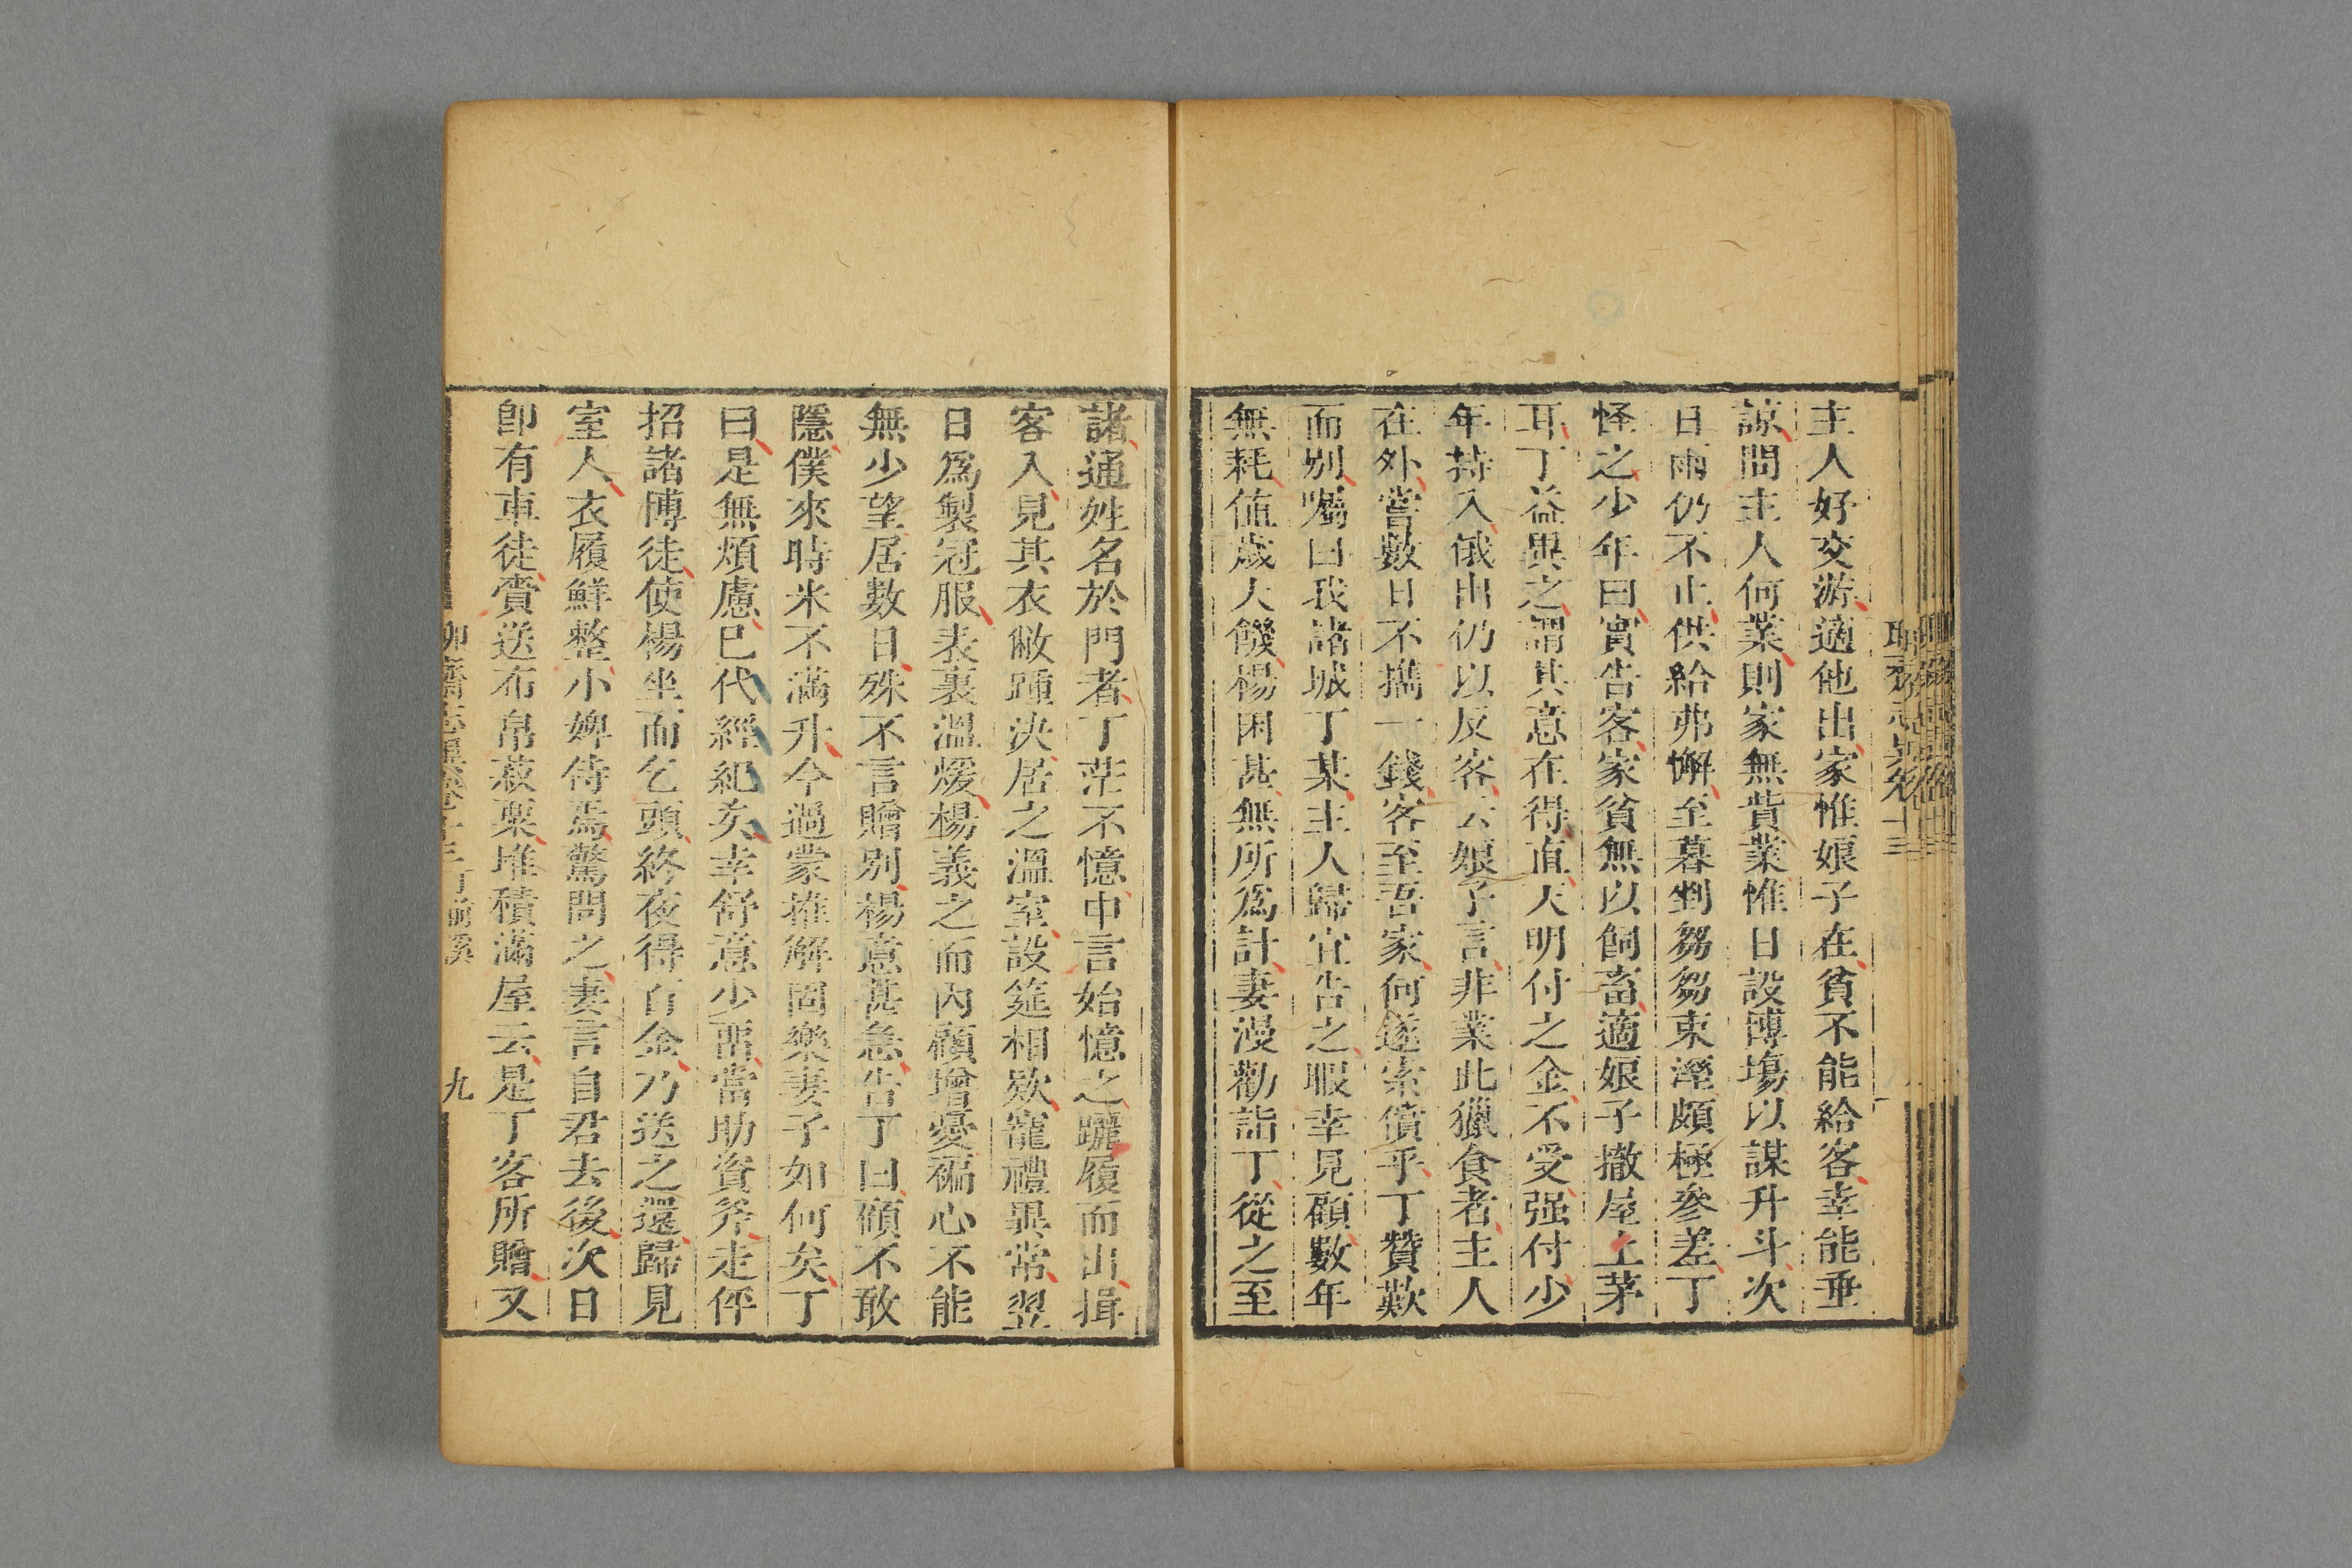 主人好交游適他出家惟娘子在貧不能給客幸能垂
諒問主人何業則家無貲業惟日設博塲以謀升斗次
日雨仍不止供給弗懈至暮剉芻芻束溼頗極參差丁
怪之少年曰實告客家貧無以飼畜適娘子撤屋上茅
耳丁益異之謂其意在得直天明付之金不受强付少
年持入俄出仍以反客云娘子言非業此獵食者主人
在外嘗數日不攜一錢客至吾家何遂索償乎丁贊歎
而別囑曰我諸城丁某主人歸宜告之暇幸見顧數年
無耗值歲大饑楊困甚無所爲計妻漫勸詣丁從之至
諸通姓名於門者丁茫不憶申言始憶之躧履而出揖
客入見其衣敝踵決居之溫室設筵相欵寵禮異常翌
日爲製冠服表裏溫煖楊義之而內顧增憂褊心不能
無少望居數日殊不言贈別楊意甚急告丁曰顧不敢
隱僕來時米不滿升今過蒙推解固樂妻子如何矣丁
曰是無煩慮已代經紀矣幸舒意少畱當助資斧走伻
招諸博徒使楊坐而乞頭終夜得百金乃送之還歸見
室人衣履鮮整小婢侍焉驚問之妻言自君去後次日
卽有車徒賫送布帛菽粟堆積滿屋云是丁客所贈又
九